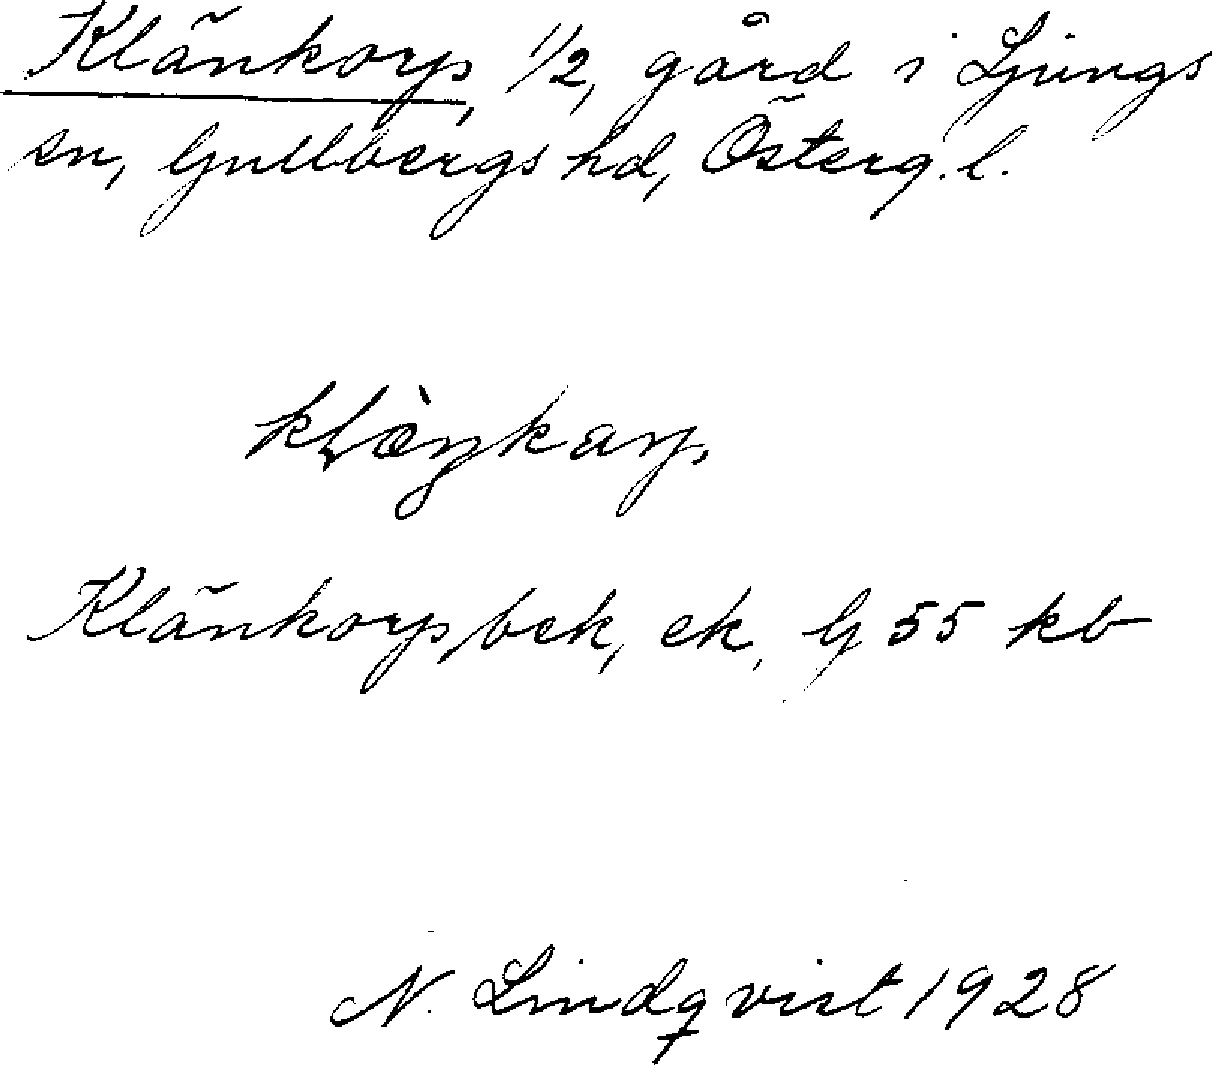 Klänkorp, 1/2, gård i Ljungs
sn, Gullbergs hd, Österg. l.
Klänkorp, bek, ek, G 55 kb
N. Lindqvist 1928